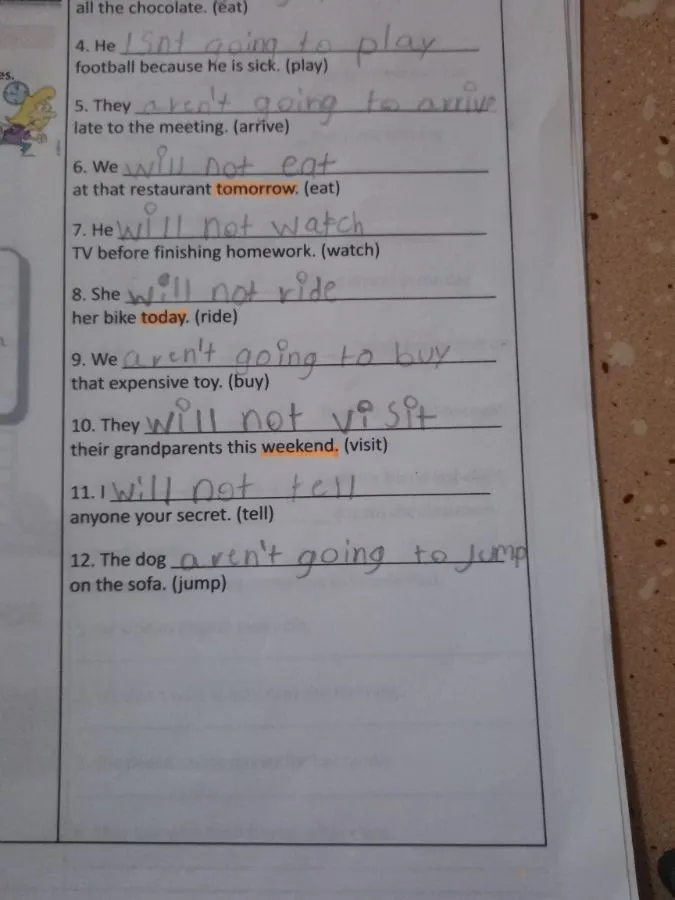 all the chocolate. (eat)
es.
4. He Isnt going to play
football because he is sick. (play)
5. They aren't going to arrive
late to the meeting. (arrive)
6. We will not eat
at that restaurant tomorrow. (eat)
7. He will not watch
TV before finishing homework. (watch)
8. She will not ride
her bike today. (ride)
9. We aren't going to buy
that expensive toy. (buy)
10. They will not visit
their grandparents this weekend. (visit)
11. I will not tell
anyone your secret. (tell)
12. The dog aren't going to Jump
on the sofa. (jump)